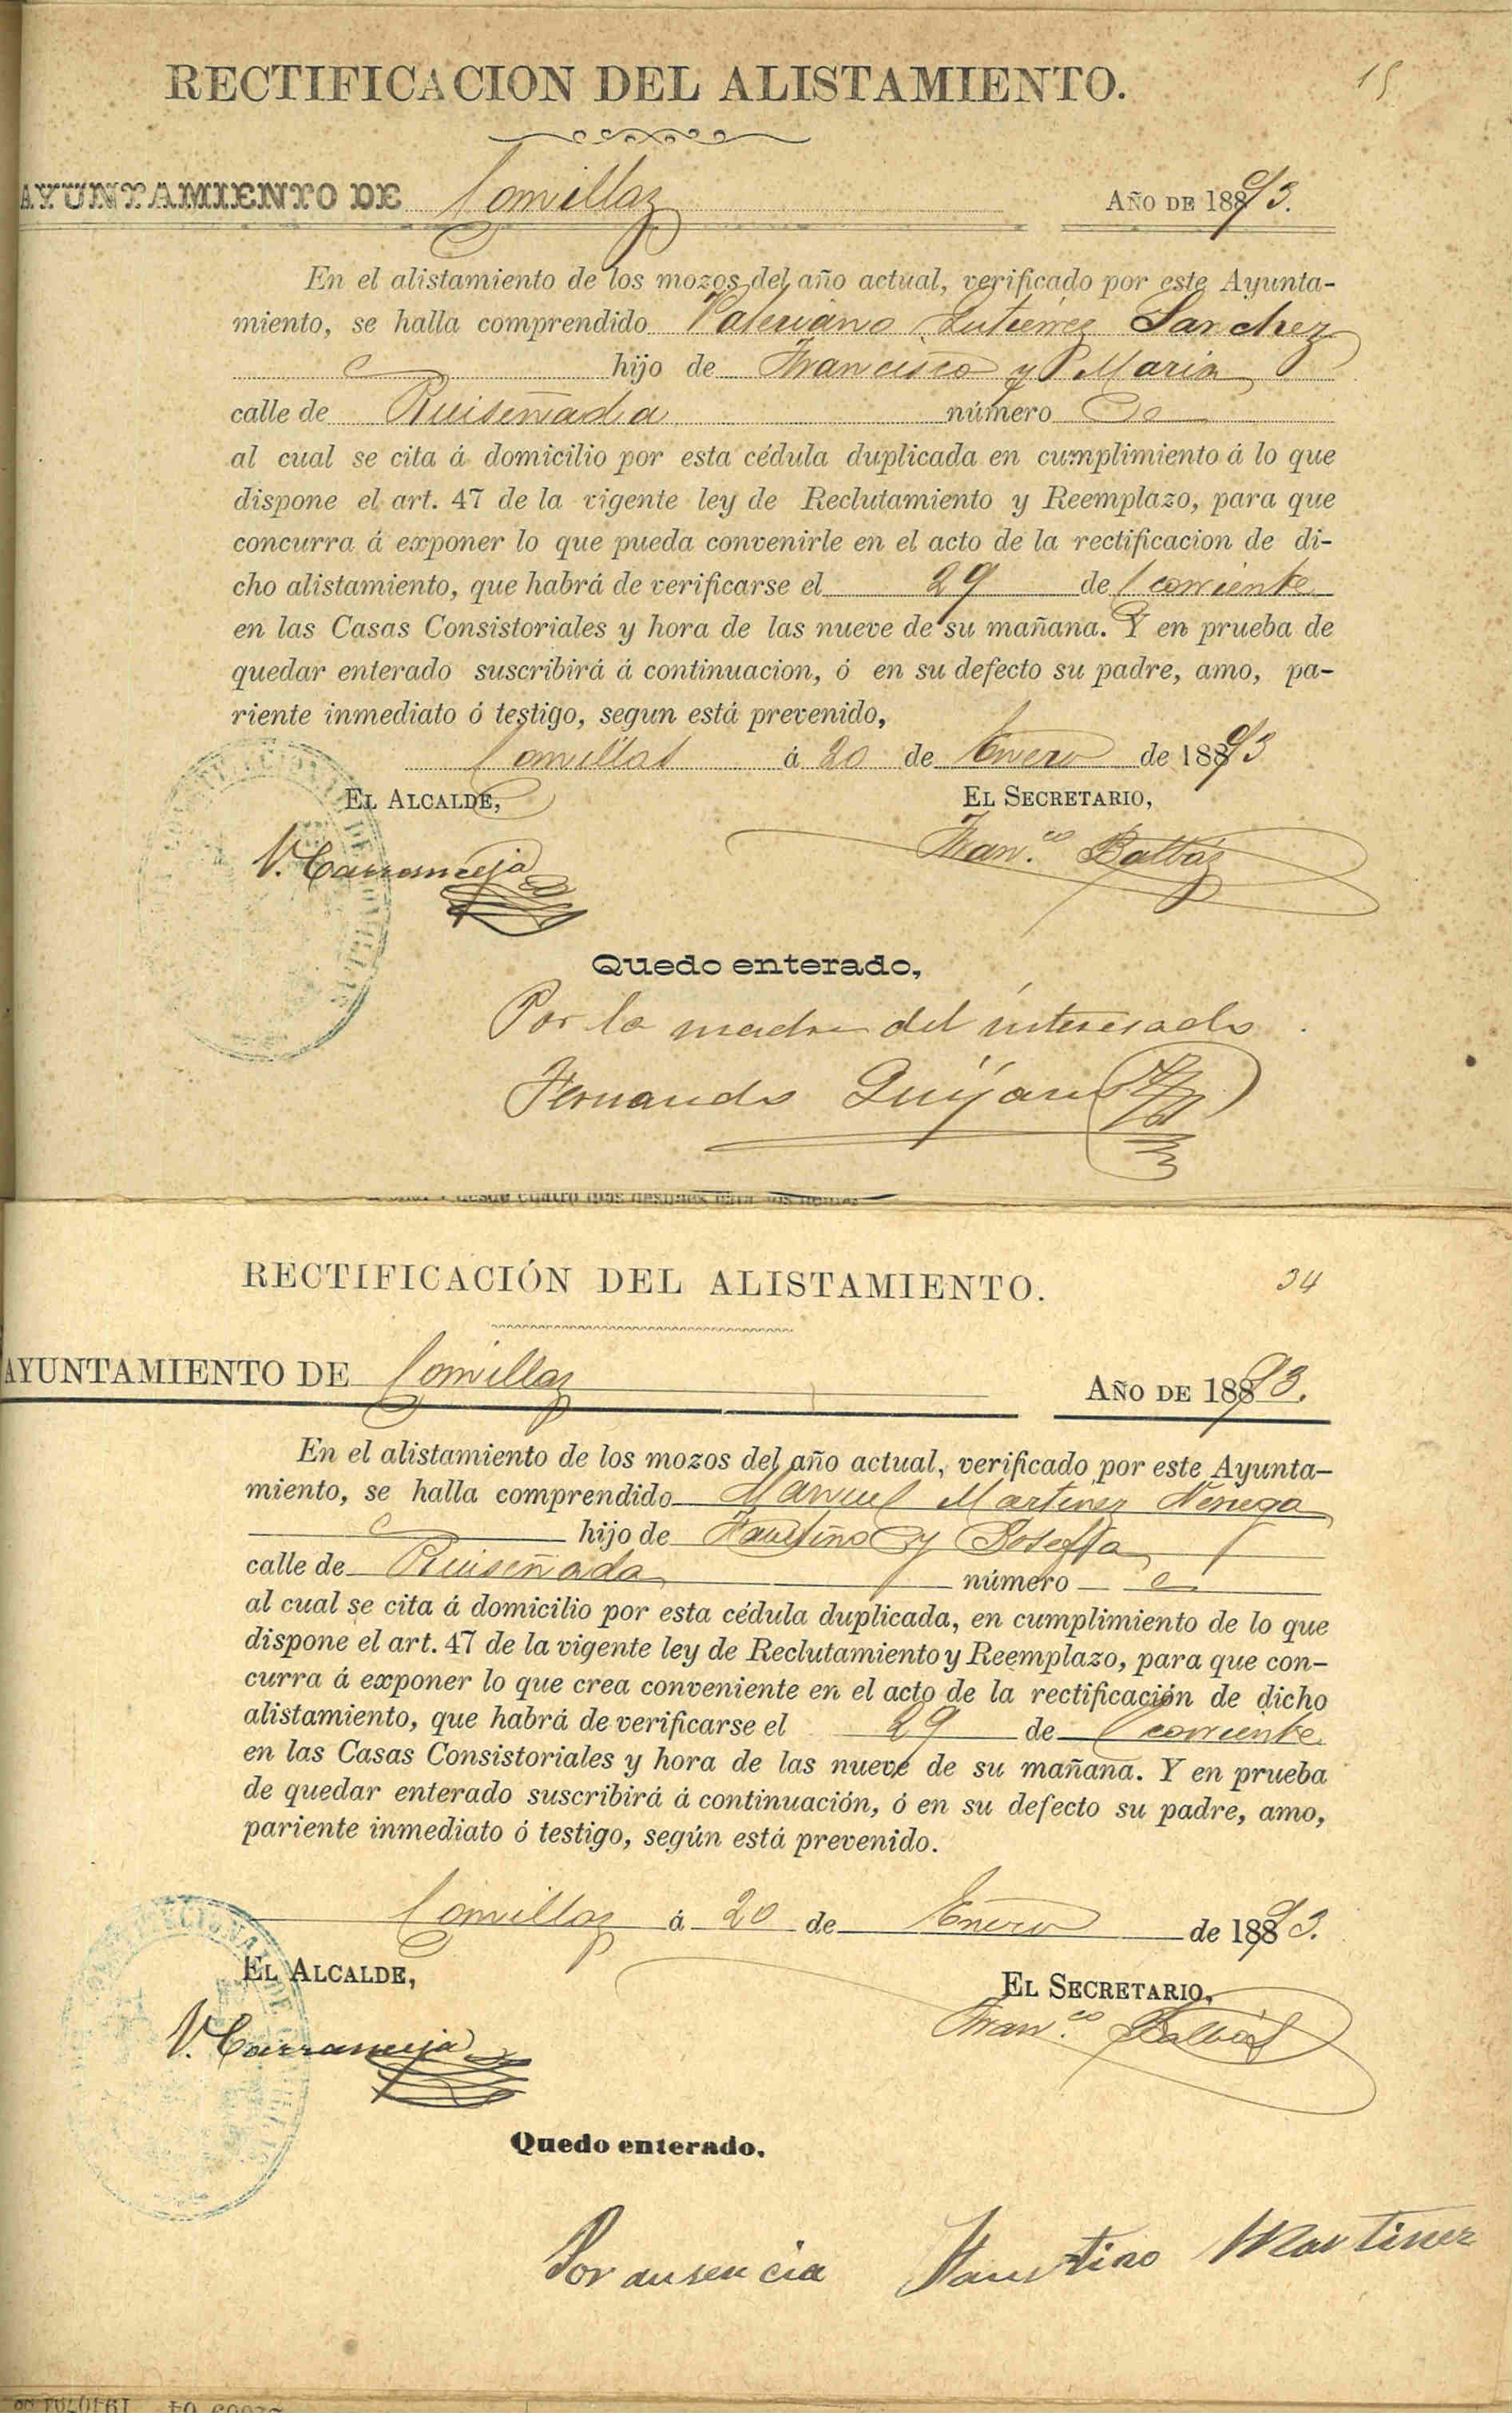 RECTIFICACION DEL ALISTAMIENTO.
15
AYUNTAMIENTO DE Comillas AÑO DE 1893.
En el alistamiento de los mozos del año actual, verificado por este Ayunta-
miento, se halla comprendido Valeriano Gutierrez Sanchez
hijo de Francisco y Maria
calle de Ruiseñada número
al cual se cita á domicilio por esta cédula duplicada en cumplimiento á lo que
dispone el art. 47 de la vigente ley de Reclutamiento y Reemplazo, para que
concurra á exponer lo que pueda convenirle en el acto de la rectificacion de di-
cho alistamiento, que habrá de verificarse el 29 del corriente
en las Casas Consistoriales y hora de las nueve de su mañana. Y en prueba de
quedar enterado suscribirá á continuacion, ó en su defecto su padre, amo, pa-
riente inmediato ó testigo, segun está prevenido,
Comillas á 20 de Enero de 1893
EL ALCALDE, EL SECRETARIO,
V. Carranceja Fran.co Balbás
Quedo enterado,
Por la madre del interesado
Fernando Quijano
RECTIFICACIÓN DEL ALISTAMIENTO.
34
AYUNTAMIENTO DE Comillas AÑO DE 1893.
En el alistamiento de los mozos del año actual, verificado por este Ayunta-
miento, se halla comprendido Manuel Martinez
hijo de Faustino y Josefa
calle de Ruiseñada número
al cual se cita á domicilio por esta cédula duplicada, en cumplimiento de lo que
dispone el art. 47 de la vigente ley de Reclutamiento y Reemplazo, para que con-
curra á exponer lo que crea conveniente en el acto de la rectificación de dicho
alistamiento, que habrá de verificarse el 29 del corriente
en las Casas Consistoriales y hora de las nueve de su mañana. Y en prueba
de quedar enterado suscribirá á continuación, ó en su defecto su padre, amo,
pariente inmediato ó testigo, según está prevenido.
Comillas á 20 de Enero de 1893.
EL ALCALDE,
EL SECRETARIO,
V. Carranceja Fran.co Balbás
Quedo enterado.
Por ausencia Faustino Martinez